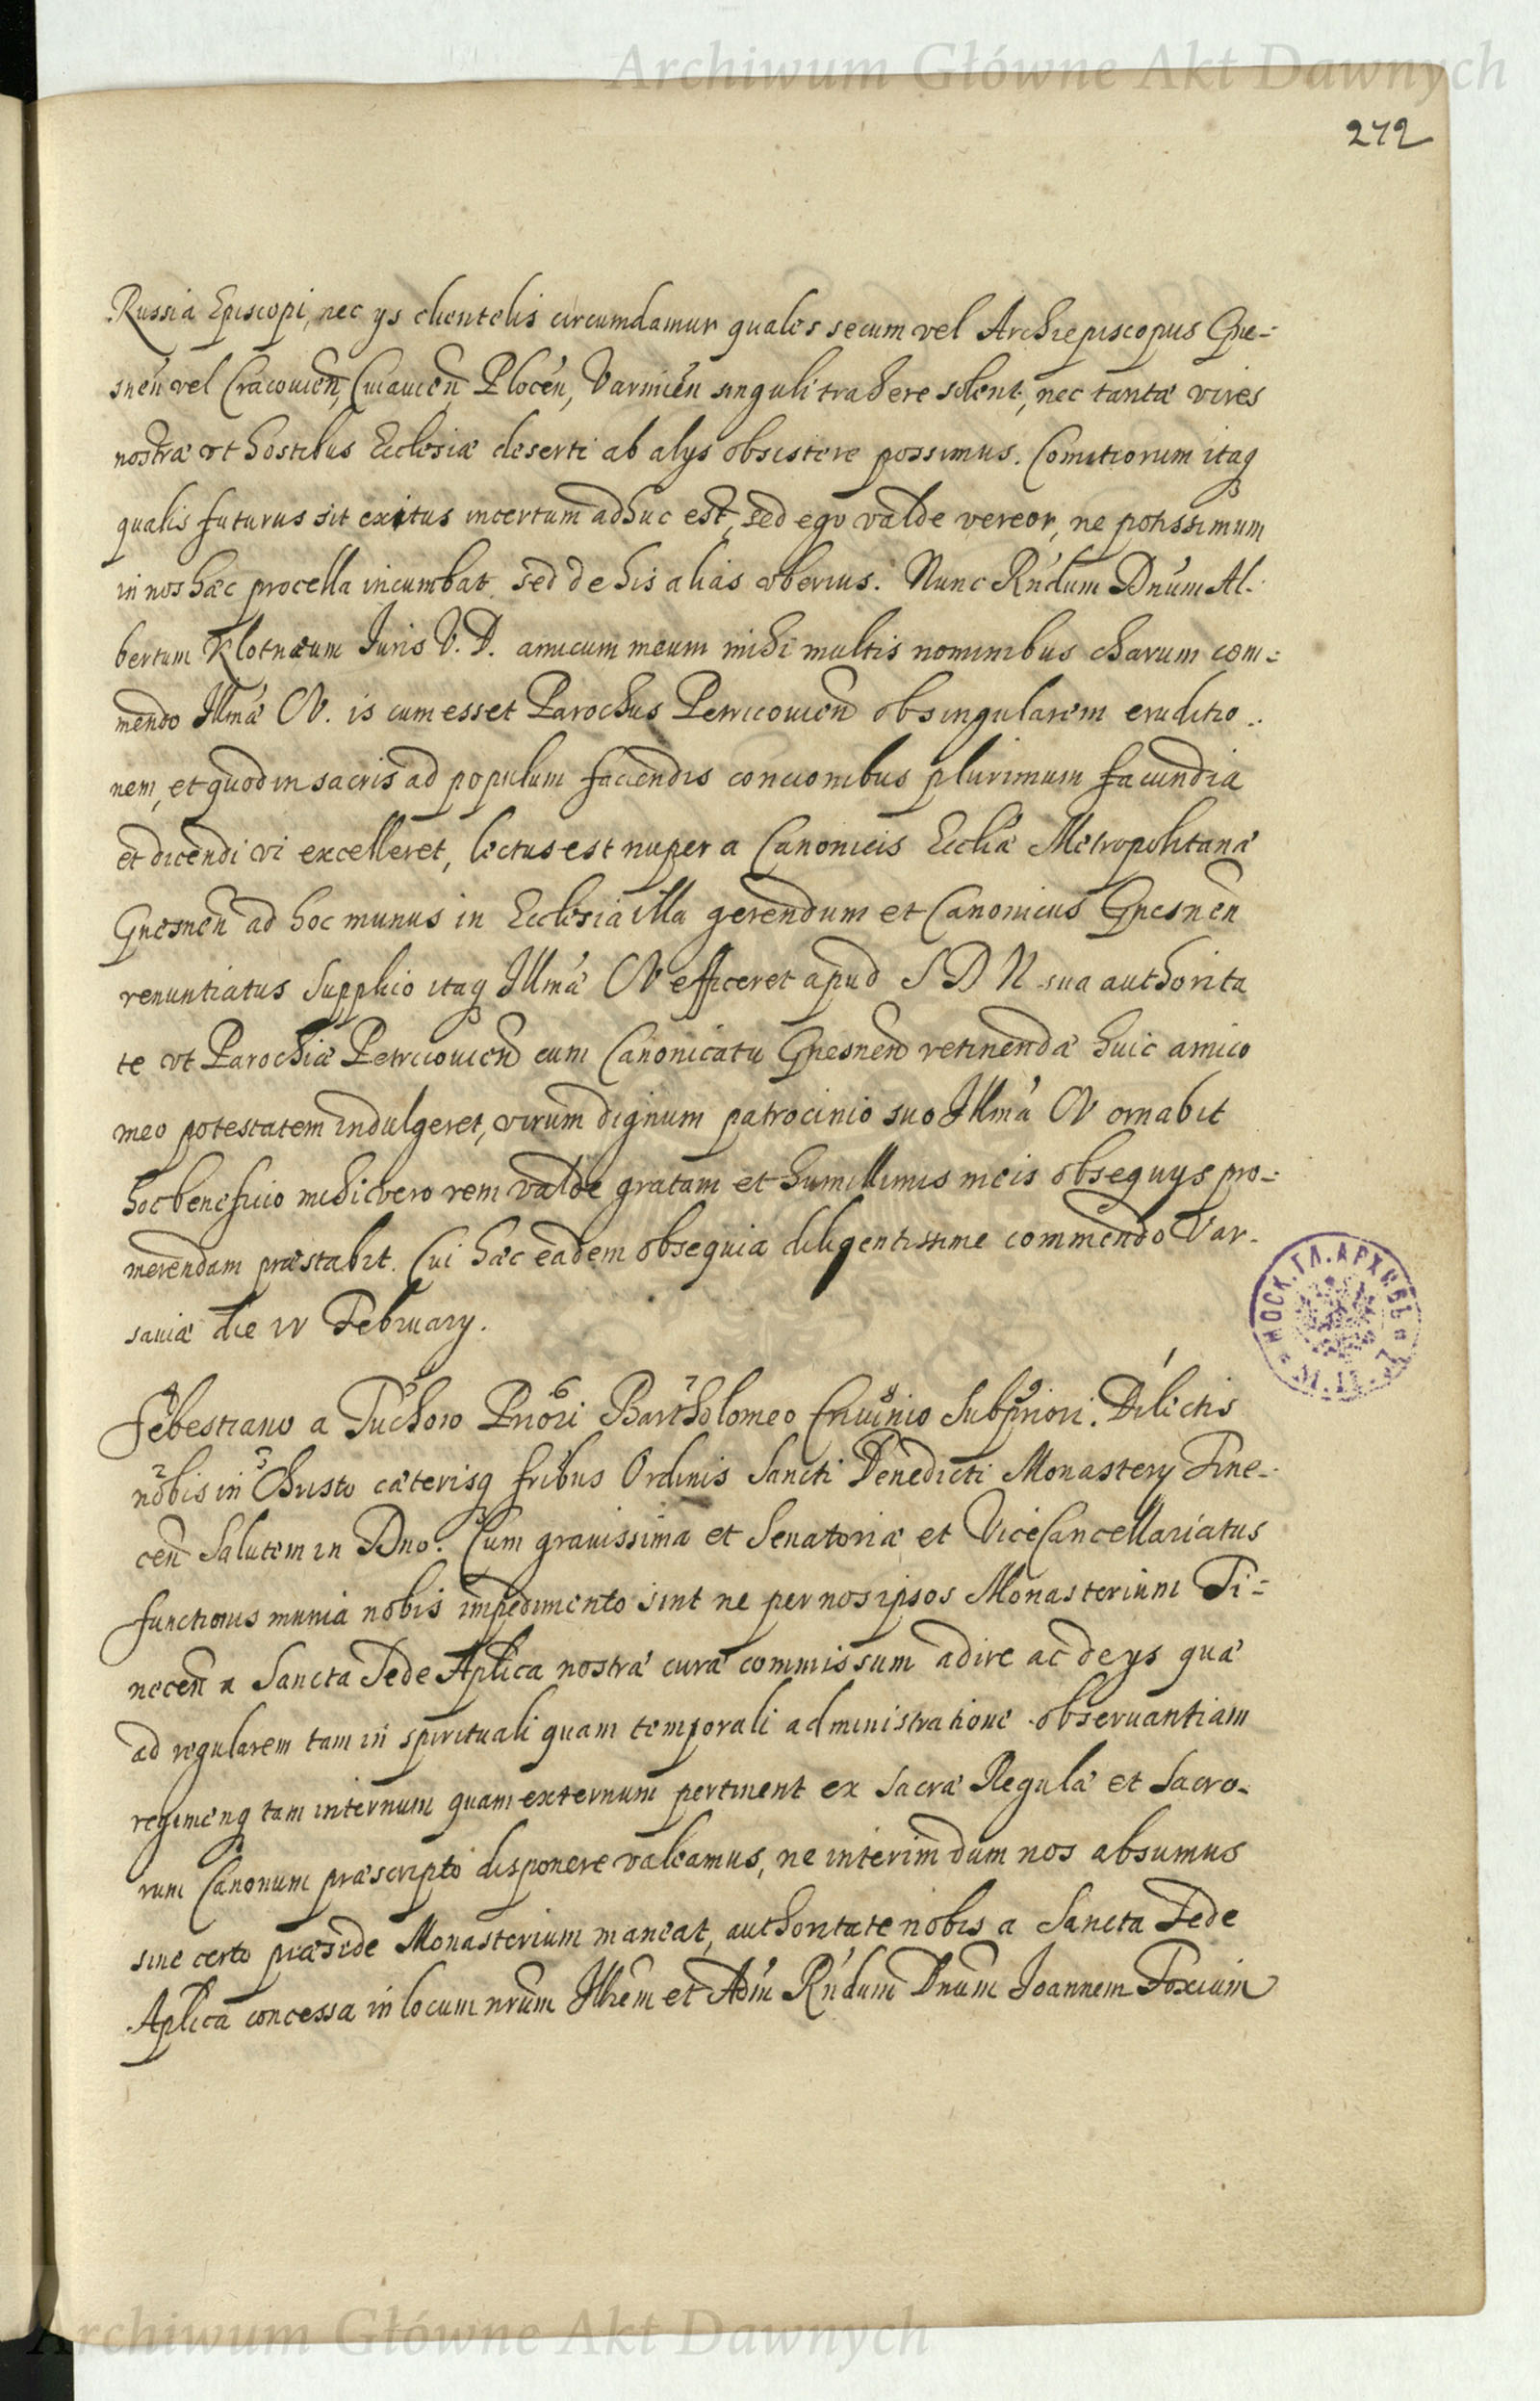 Archiwum Główne Akt Dawnych
272
Russia Episcopi, nec ys clientelis circumdamur quales secum vel Archiepiscopus Gne=
snen̄ vel Cracouien̄, Cuiauien̄ Plocen̄, Varmien̄ singuli trahere solent, nec tantæ vires
nostræ vt hostibus Ecclesiæ deserti ab alys obsistere possimus. Comitiorum itaq
qualis futurus sit exitus incertum adhuc est, sed ego valde vereor, ne potissimum
in nos hæc procella incumbat. sed de his alias vberius. Nunc Rn̄dum Dn̄um Al:
bertum Klotnæum Iuris V. D. amicum meum mihi multis nominibus charum com=
mendo Illmæ CV. is cum esset Parochus Petricouien̄ ob singularem eruditio..
nem, et quod in sacris ad populum faciendis concionibus plurimum facundia
et dicendi vi excelleret, lectus est nuper a Canonicis Eccliæ Metropolitanæ
Gnesnen̄ ad hoc munus in Ecclesia illa gerendum et Canonicus Gnesnen̄
renuntiatus Supplico itaq Illmæ CV efficeret apud S D N sua authorita
te vt Parochiæ Petricouien̄ cum Canonicatu Gnesnen̄ retinendæ huic amico
meo potestatem indulgeret, virum dignum patrocinio suo Illma CV ornabit
hoc beneficio mihi vero rem valde gratam et humillimis meis obsequys pro=
merendam præstabit. Cui hæc eadem obsequia diligentissime commendo Var-
sauiæ die IV February.
Sebestiano a Tuchow Priori Bartholomeo Subpriori. Dilictis
nobis in Christo cæterisq fribus Ordinis Sancti Benedicti Monastery Tine-
cen̄ Salutem in Dno. Cum grauissima et Senatoriæ et ViceCancellariatus
functionis munia nobis impedimento sint ne per nos ipsos Monasterium Ti=
necen̄ a Sancta Sede Aplica nostræ curæ commissum adire ac de ys quæ
ad regularem tam in spirituali quam temporali administratione obseruantiam
regimenq tam internum quam externum pertinent ex sacræ Regulæ et Sacro-
rum Canonum præscripto disponere valeamus, ne interim dum nos absumus
sine certo præside Monasterium maneat, authoritate nobis a Sancta Sede
Aplica concessa in locum nrum Illrem et Adm Rn̄dum Dnum Ioannem Foxium
МОСК. ГЛ. АРХИВЪ
Archiwum Główne Akt Dawnych